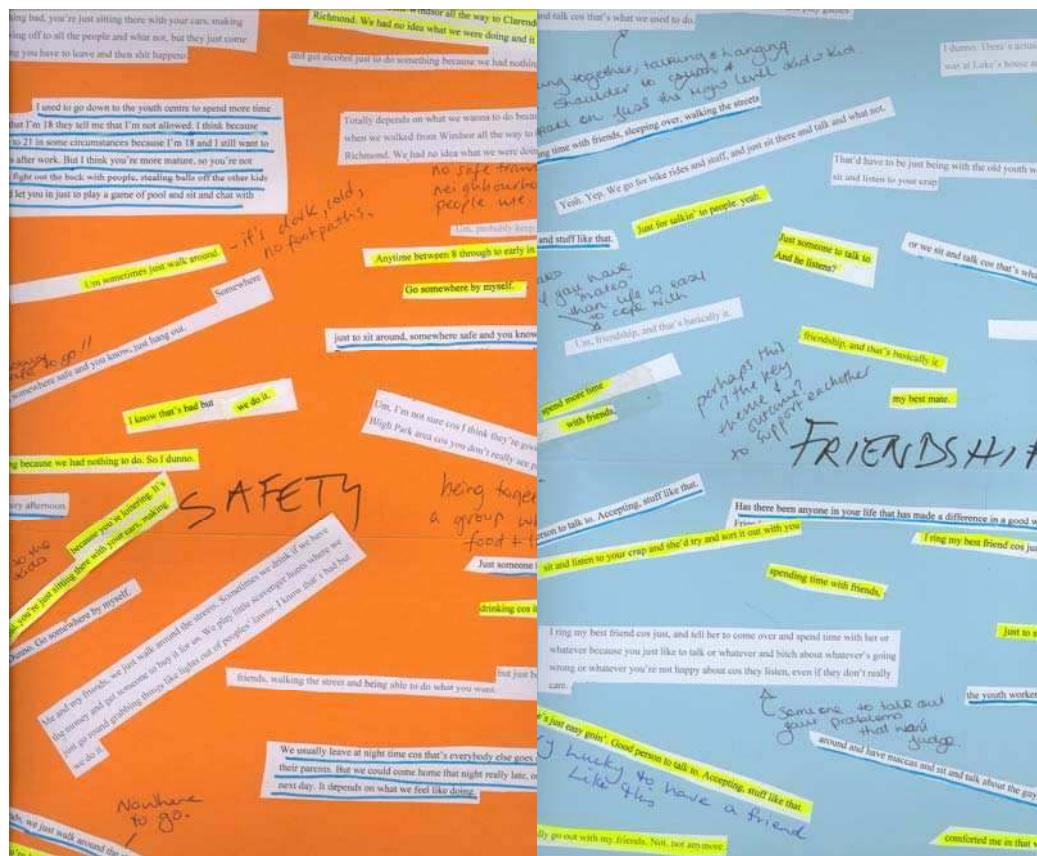 ing bad, you're just sitting there with your cars, making
ving off to all the people and what not, but they just come
ng you have to leave and then shit happens
Windsor all the way to Clarend
Richmond. We had no idea what we were doing and it
and get alcohol just to do something because we had nothin
I used to go down to the youth centre to spend more time
that I'm 18 they tell me that I'm not allowed. I think because
to 21 in some circumstances because I'm 18 and I still want to
s after work. But I think you're more mature, so you're not
fight out the back with people, stealing balls off the other kids
d let you in just to play a game of pool and sit and chat with
Totally depends on what we wanna to do becau
when we walked from Windsor all the way to
Richmond. We had no idea what we were doin
no safe trans
neighbourho
people we
Um, probably keep
- it's dark, cold,
no footpaths.
Um sometimes just walk around.
Anytime between 8 through to early in
Go somewhere by myself.
Somewhere
somewhere safe and you know, just hang out.
to go!!
just to sit around, somewhere safe and you know
I know that's bad but we do it.
Um, I'm not sure cos I think they're
Bligh Park area cos you don't really see p
ng because we had nothing to do. So I dunno.
ery afternoon.
SAFETY
because you're loitering. It's
you're just sitting there with your cars, making
being toge
a group w
food + 
Just someone
drinking cos i
Dunno. Go somewhere by myself.
Me and my friends, we just walk around the streets. Sometimes we drink if we have
the money and get someone to buy it for us. We play little scavenger hunts where we
just go round grabbing things like lights out of peoples' lawns. I know that's bad but
we do it.
but just b
friends, walking the street and being able to do what you want.
We usually leave at night time cos that's everybody else goes
their parents. But we could come home that night really late, o
next day. It depends on what we feel like doing.
Nowhere
to go.
ds, we just walk around the
and talk cos that's what we used to do.
ng together, talking & hanging
shoulder to
level
I dunno. There's actua
was at Luke's house a
ng time with friends, sleeping over, walking the streets
Yeah. Yep. We go for bike rides and stuff, and just sit there and talk and what not.
That'd have to be just being with the old youth w
sit and listen to your crap
Just for talkin' to people, yeah.
and stuff like that.
Just someone to talk to.
And he listens?
or we sit and talk cos that's wha
if you have
mates
than life is easy
to cope with
Um, friendship, and that's basically it.
friendship, and that's basically it.
perhaps this
is the key
theme &
outcome?
to support eachother
my best mate.
spend more time
with friends,
FRIENDSHIP
erson to talk to. Accepting, stuff like that.
Has there been anyone in your life that has made a difference in a good w
sit and listen to your crap and she'd try and sort it out with you
I ring my best friend cos jus
spending time with friends,
I ring my best friend cos just, and tell her to come over and spend time with her or
whatever because you just like to talk or whatever and bitch about whatever's going
wrong or whatever you're not happy about cos they listen, even if they don't really
care.
Just to s
the youth worker
someone to talk out
your problems
that wont
judge.
around and have maccas and sit and talk about the gay
e's just easy goin'. Good person to talk to. Accepting, stuff like that.
lucky to have a friend
Like this
lly go out with my friends. Not, not anymore.
comforted me in that w